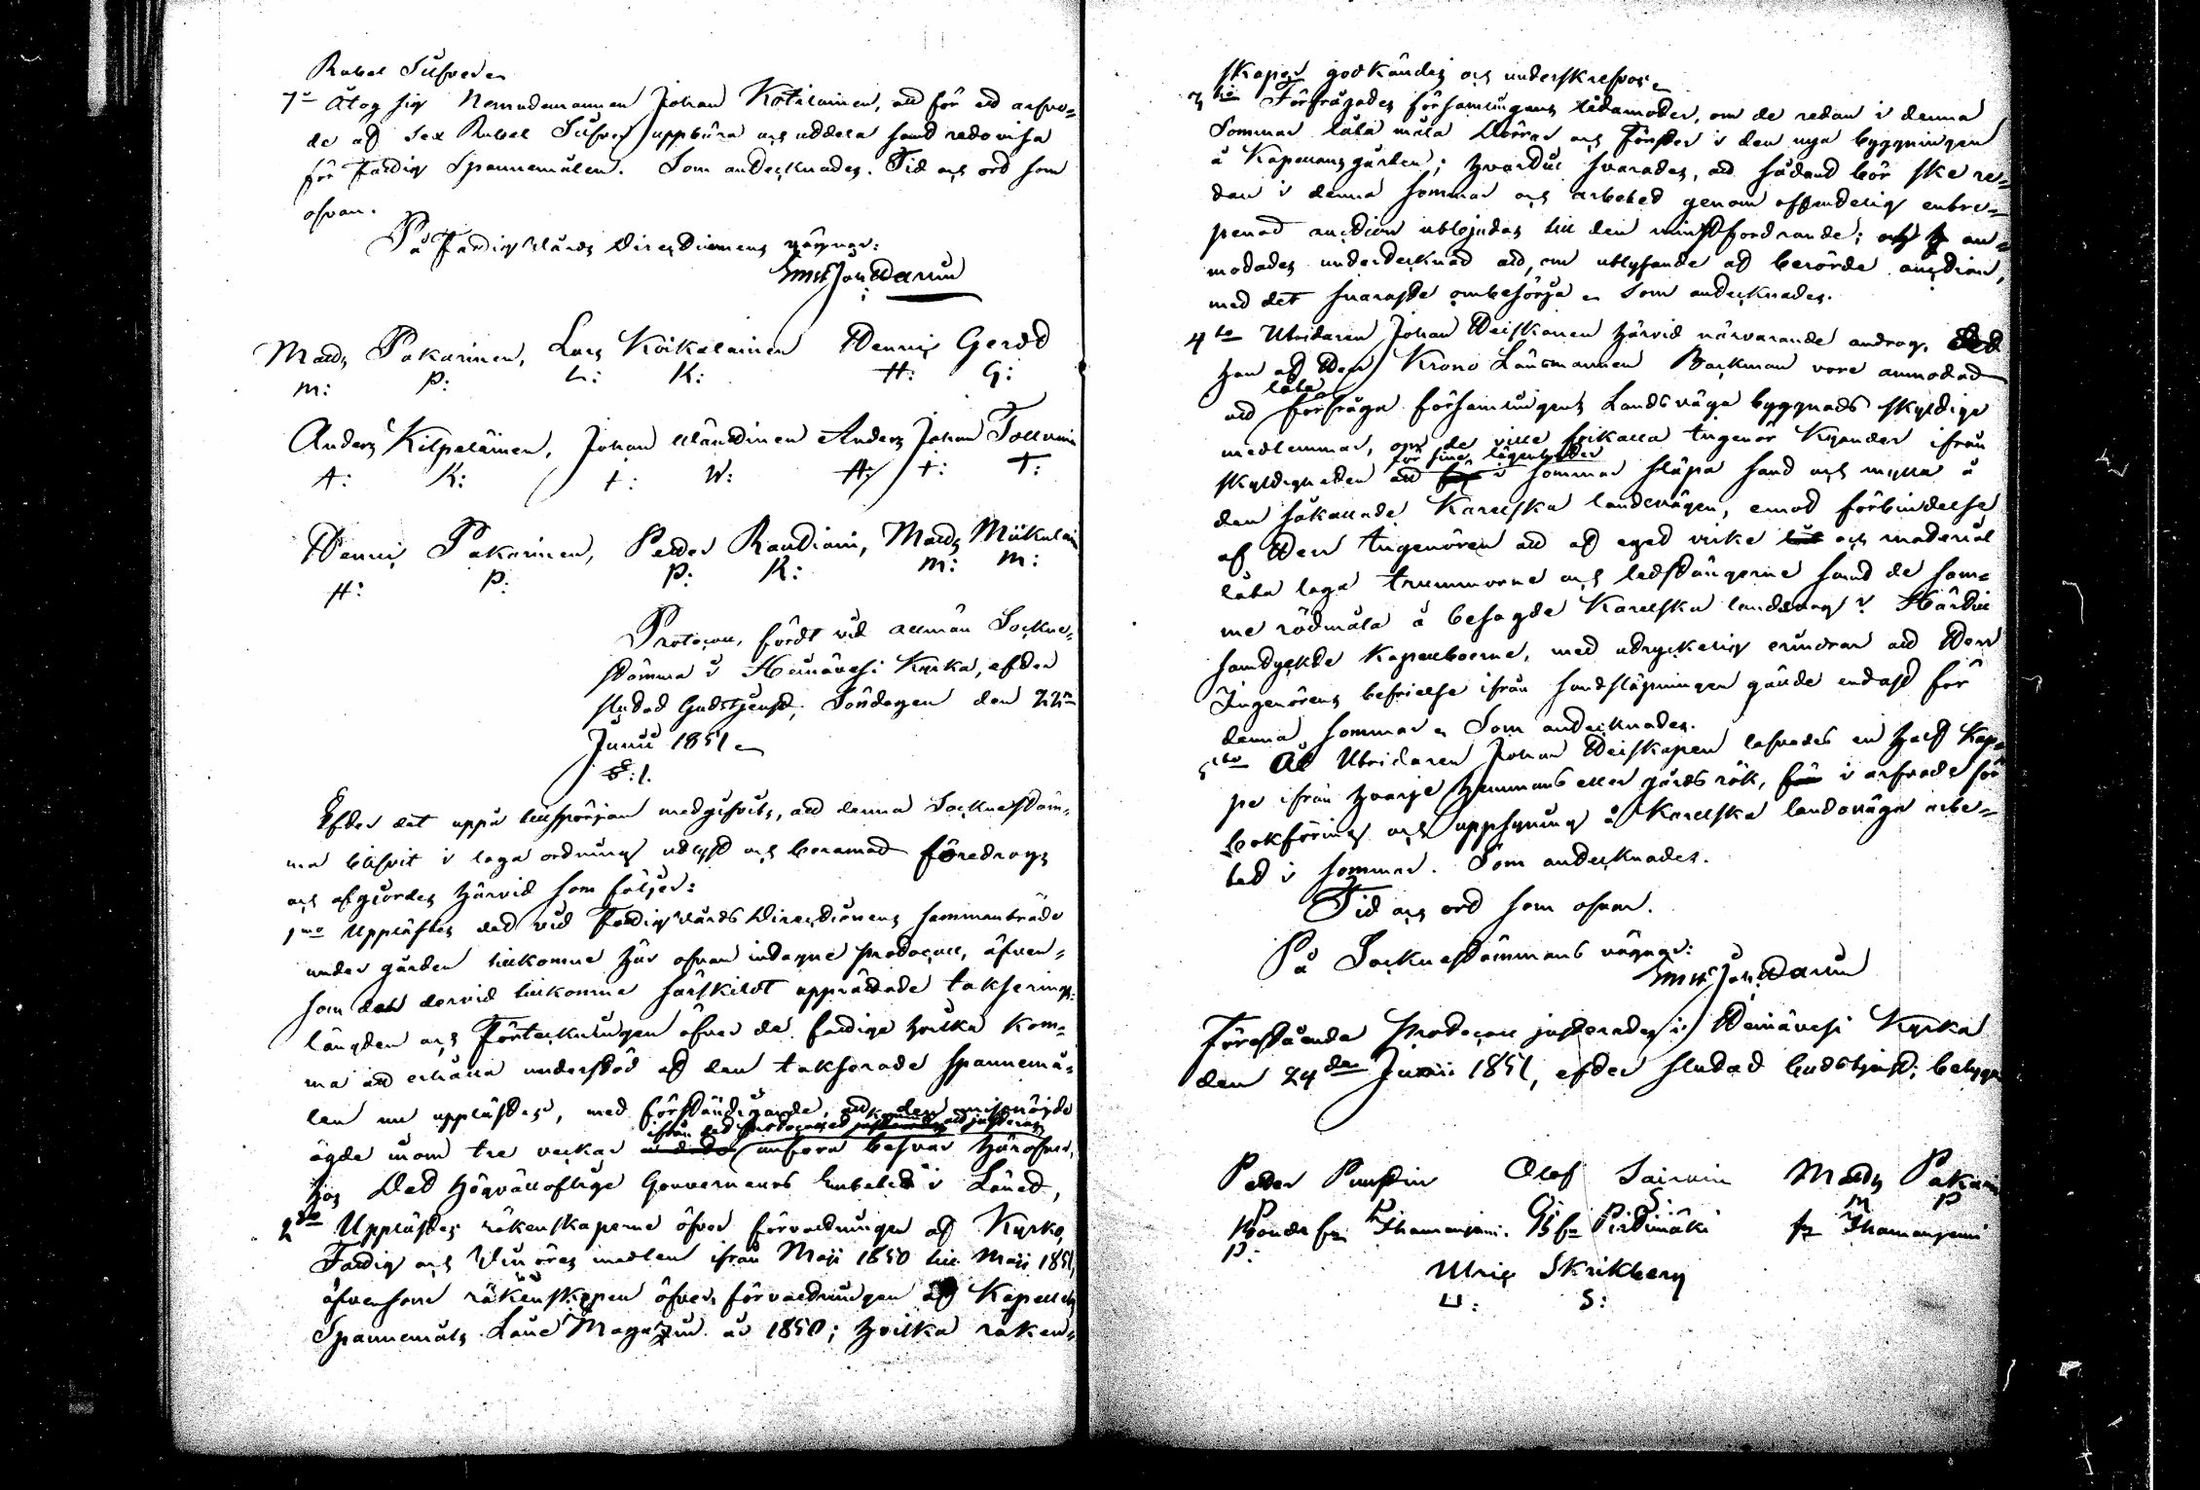 Rubel Silfver.
7o Åtog sig Nemndemannen Johan Kotilainen, att för ett arfvo-
de af Sex Rubel Silfver uppbära och utdela samt redovisa
för Fattig Spannemålen. Som antecknades. Tid och ort som
ofvan.
På Fattigvårds Directionens vägnar:
Matts Pakarinen, Lars Koikalainen Henric Gerdt
M: P: L: K: H: G:
Anders Kilpeläinen, Johan Wänttinen Anders Johan
A: K: I: W: A: I: T:
Henric Pakarinen, Petter Rautiain, Matts
H: P: P: R: M: M:
Protocoll, fördt vid allmän Sockne-
stämma i Heinävesi Kyrka, efter
slutad Gudstjenst, Söndagen den 22n
Junii 1851.
S: 1.
Efter det uppå tillspörjan medgifvits, att denna Socknestäm-
ma blifvit i laga ordning utlyst och beramad föredrogs
och afgjordes härvid som följer:
1mo Upplästes det vid Fattigvårds Directionens sammanträde
under gården tillkomne här ofvan intagne Protocoll, äfven-
som den dervid tillkomne särskildt upprättade taxerings-
längden och Förteckningen öfver de fattiga hvilka kom-
ma att erhålla understöd af den taxerade spannemå-
len nu upplästes, med förständigande, att den missnöjde
ifrån det Protocollet justerades
ägde inom tre veckor anföra besvär häröfver,
hos Det Högvälloflige Gouvernements Embetet i Länet,
2do Upplästes räkenskaperne öfver förvaltningen af Kyrko,
Fattig och medlen ifrån Maji 1850 till Maji 1851,
äfvensom räkenskapen öfver förvaltningen af Kapellets
Spannemåls Låne Magazin år 1850; hvilka räken-
skaper godkändes och underskrefvos.
3tio Förfrågades församlingens ledamöter, om de redan i denna
Sommar låta måla Dörrar och Fönster i den nya byggningen
å Kapellansgården; hvartill svarades, att sådant bör ske re-
dan i denna sommar och arbetet genom offentelig entre-
penad auction utbjudas till den minstfordrande; och an-
modades undertecknad att, om utlysande af berörde auction,
med det snaraste ombesörja. Som antecknades.
4to Utridaren Johan Heiskanen härvid närvarande androg, det
han af Herr Krono Länsmannen Backman vore anmodad
låta
att förfråga församlingens Landsväga byggnads skyldige
medlemmar, om de ville frikalla Ingeniör Kyander ifrån
för sine lägenheter
skyldigheten att i sommar släpa sand och mylla å
den såkallade Karelska landsvägen, emot förbindelse
af Herr Ingeniören att af eget virke och material
låta laga trummorne och ledstängerne samt de sam-
me rödmåla å besagde Karelska landsväg? Härtill
samtyckte Kapellboerne, med uttryckelig erindran att Herr
Ingeniörens befrielse ifrån sandsläpningen gällde endast för
denna sommar. Som antecknades.
5to Åt Utridaren Johan Heiskanen lofvades en half Kap-
pe ifrån hvarje Hemmans eller gårds rök, i arfvode för
bokföring och uppsyning å Karelska landsväga arbe-
tet i sommar. Som antecknades.
Tid och ort som ofvan.
På Socknestämmans vägnar:
Förestående Protocoll justerades i Heinävesi Kyrka
den 24de Junii 1851, efter slutad Gudstjenst; betyga
Petter Olof Matts
P: P: O: S: M P
Bonde fr.
P:
Ulric Skrikberg
U: S: